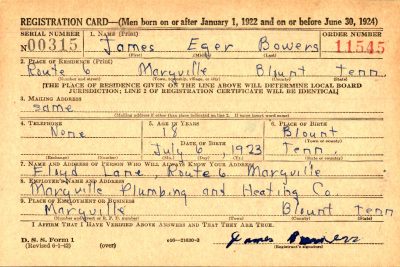 REGISTRATION CARD—(Men born on or after January 1, 1922 and on or before June 30, 1924)
SERIAL NUMBER 1. NAME (Print) ORDER NUMBER
N00315 James Eger Bowers 11545
(First) (Middle) (Last)
2. PLACE OF RESIDENCE (Print)
Route 6 Maryville Blount Tenn
(Number and street) (Town, township, village, or city) (County) (State)
[THE PLACE OF RESIDENCE GIVEN ON THE LINE ABOVE WILL DETERMINE LOCAL BOARD
JURISDICTION; LINE 2 OF REGISTRATION CERTIFICATE WILL BE IDENTICAL]
3. MAILING ADDRESS
same
[Mailing address if other than place indicated on line 2. If same insert word same]
4. TELEPHONE 5. AGE IN YEARS 6. PLACE OF BIRTH
None 18 Blount
DATE OF BIRTH (Town or county)
July 6 1923 Tenn.
(Exchange) (Number) (Mo.) (Day) (Yr.) (State or country)
7. NAME AND ADDRESS OF PERSON WHO WILL ALWAYS KNOW YOUR ADDRESS
Lane, Route 6 Maryville
8. EMPLOYER'S NAME AND ADDRESS
Maryville Plumbing and Heating Co.
9. PLACE OF EMPLOYMENT OR BUSINESS
Maryville Blount Tenn
(Number and street or R. F. D. number) (Town) (County) (State)
I AFFIRM THAT I HAVE VERIFIED ABOVE ANSWERS AND THAT THEY ARE TRUE.
D. S. S. Form 1
(Revised 6-1-42) (over) 16—21630-2 James Bowers
(Registrant's signature)